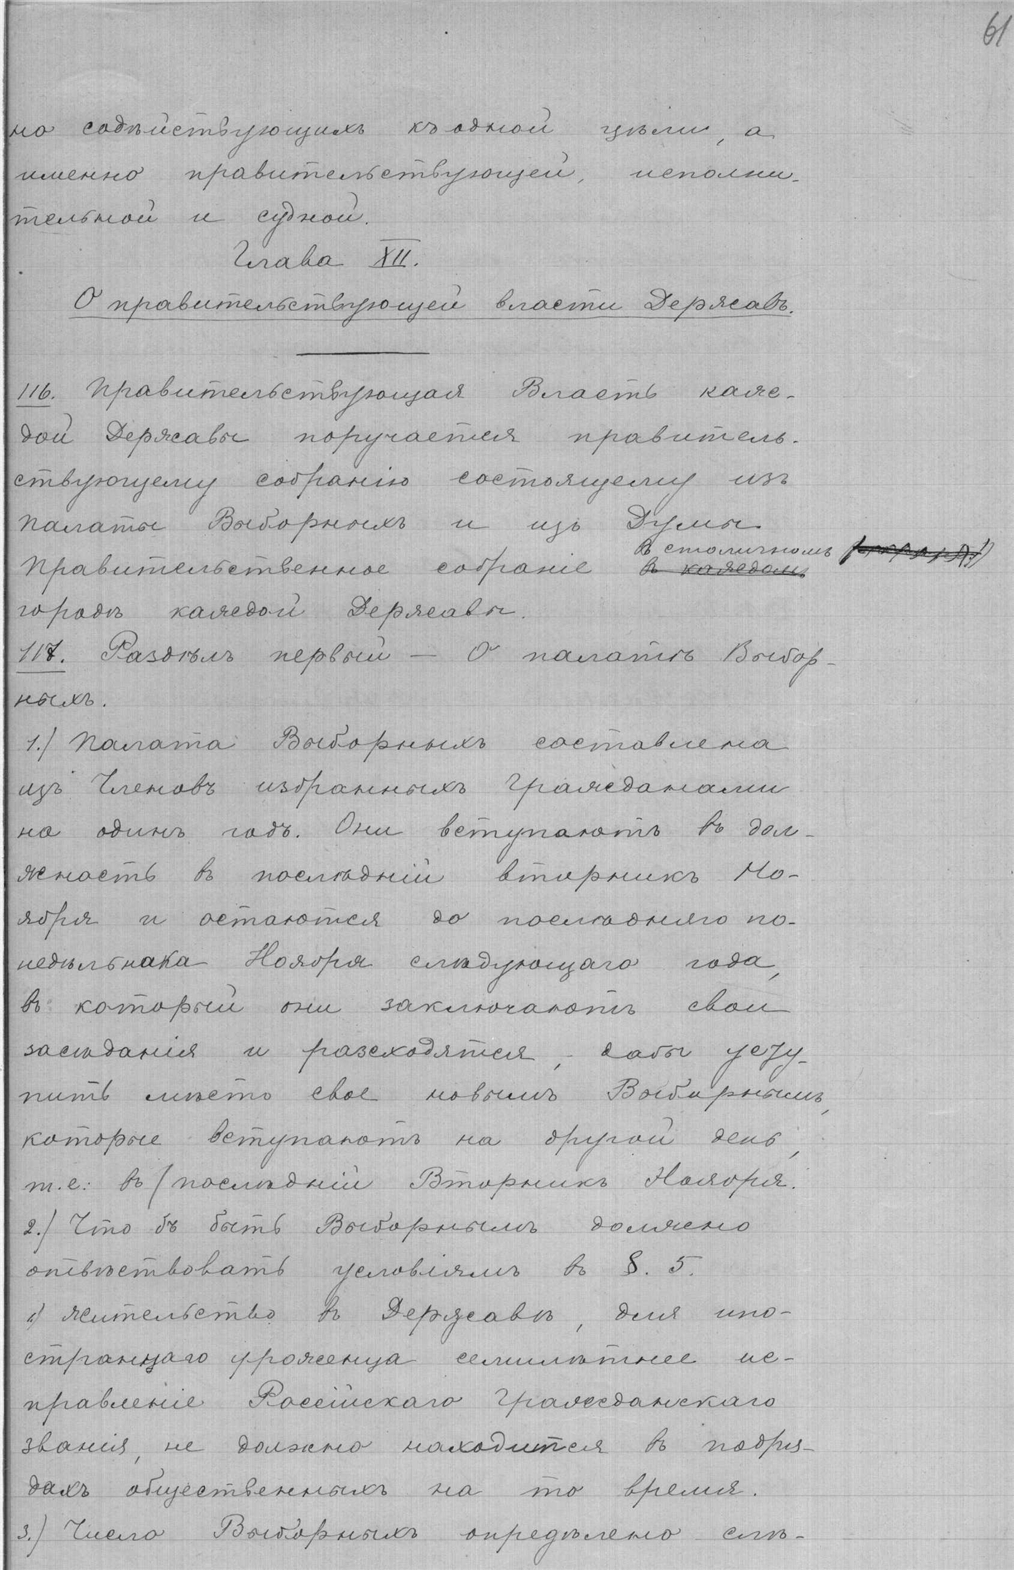 61
но содѣйствующихъ къ одной цѣли, а
именно правительствующей, исполни-
тельной и судной.
Глава XII.
О правительствующей власти Державъ.
116. Правительствующая Власть каж-
дой Державы поручается правитель-
ствующему собранію состоящему изъ
палаты Выборныхъ и изъ Думы.
Правительственное собраніе въ каждомъ въ столичномъ
городѣ каждой Державы.
117. Раздѣлъ первый — О палатѣ Выбор-
ныхъ.
1.) Палата Выборныхъ составлена
изъ Членовъ избранныхъ гражданами
на одинъ годъ. Они вступаютъ въ дол-
жность въ послѣдній вторникъ Но-
ября и остаются до послѣдняго по-
недѣльнака Ноября слѣдующаго года,
въ который они заключаютъ свои
засѣданія и разсходятся, дабы усту-
пить мѣсто свое новымъ Выборнымъ,
которые вступаютъ на другой день,
т.е: въ послѣдній Вторникъ Ноября.
2.) Что бъ быть Выборнымъ должно
отвѣтствовать условіямъ въ §. 5.
1) жительство въ Державѣ, для ино-
страннаго уроженца семилѣтнее ис-
правленіе Россійскаго Гражданскаго
званія, не должно находится въ подря-
дахъ общественныхъ на то время.
3.) Число Выборныхъ опредѣлено слѣ-